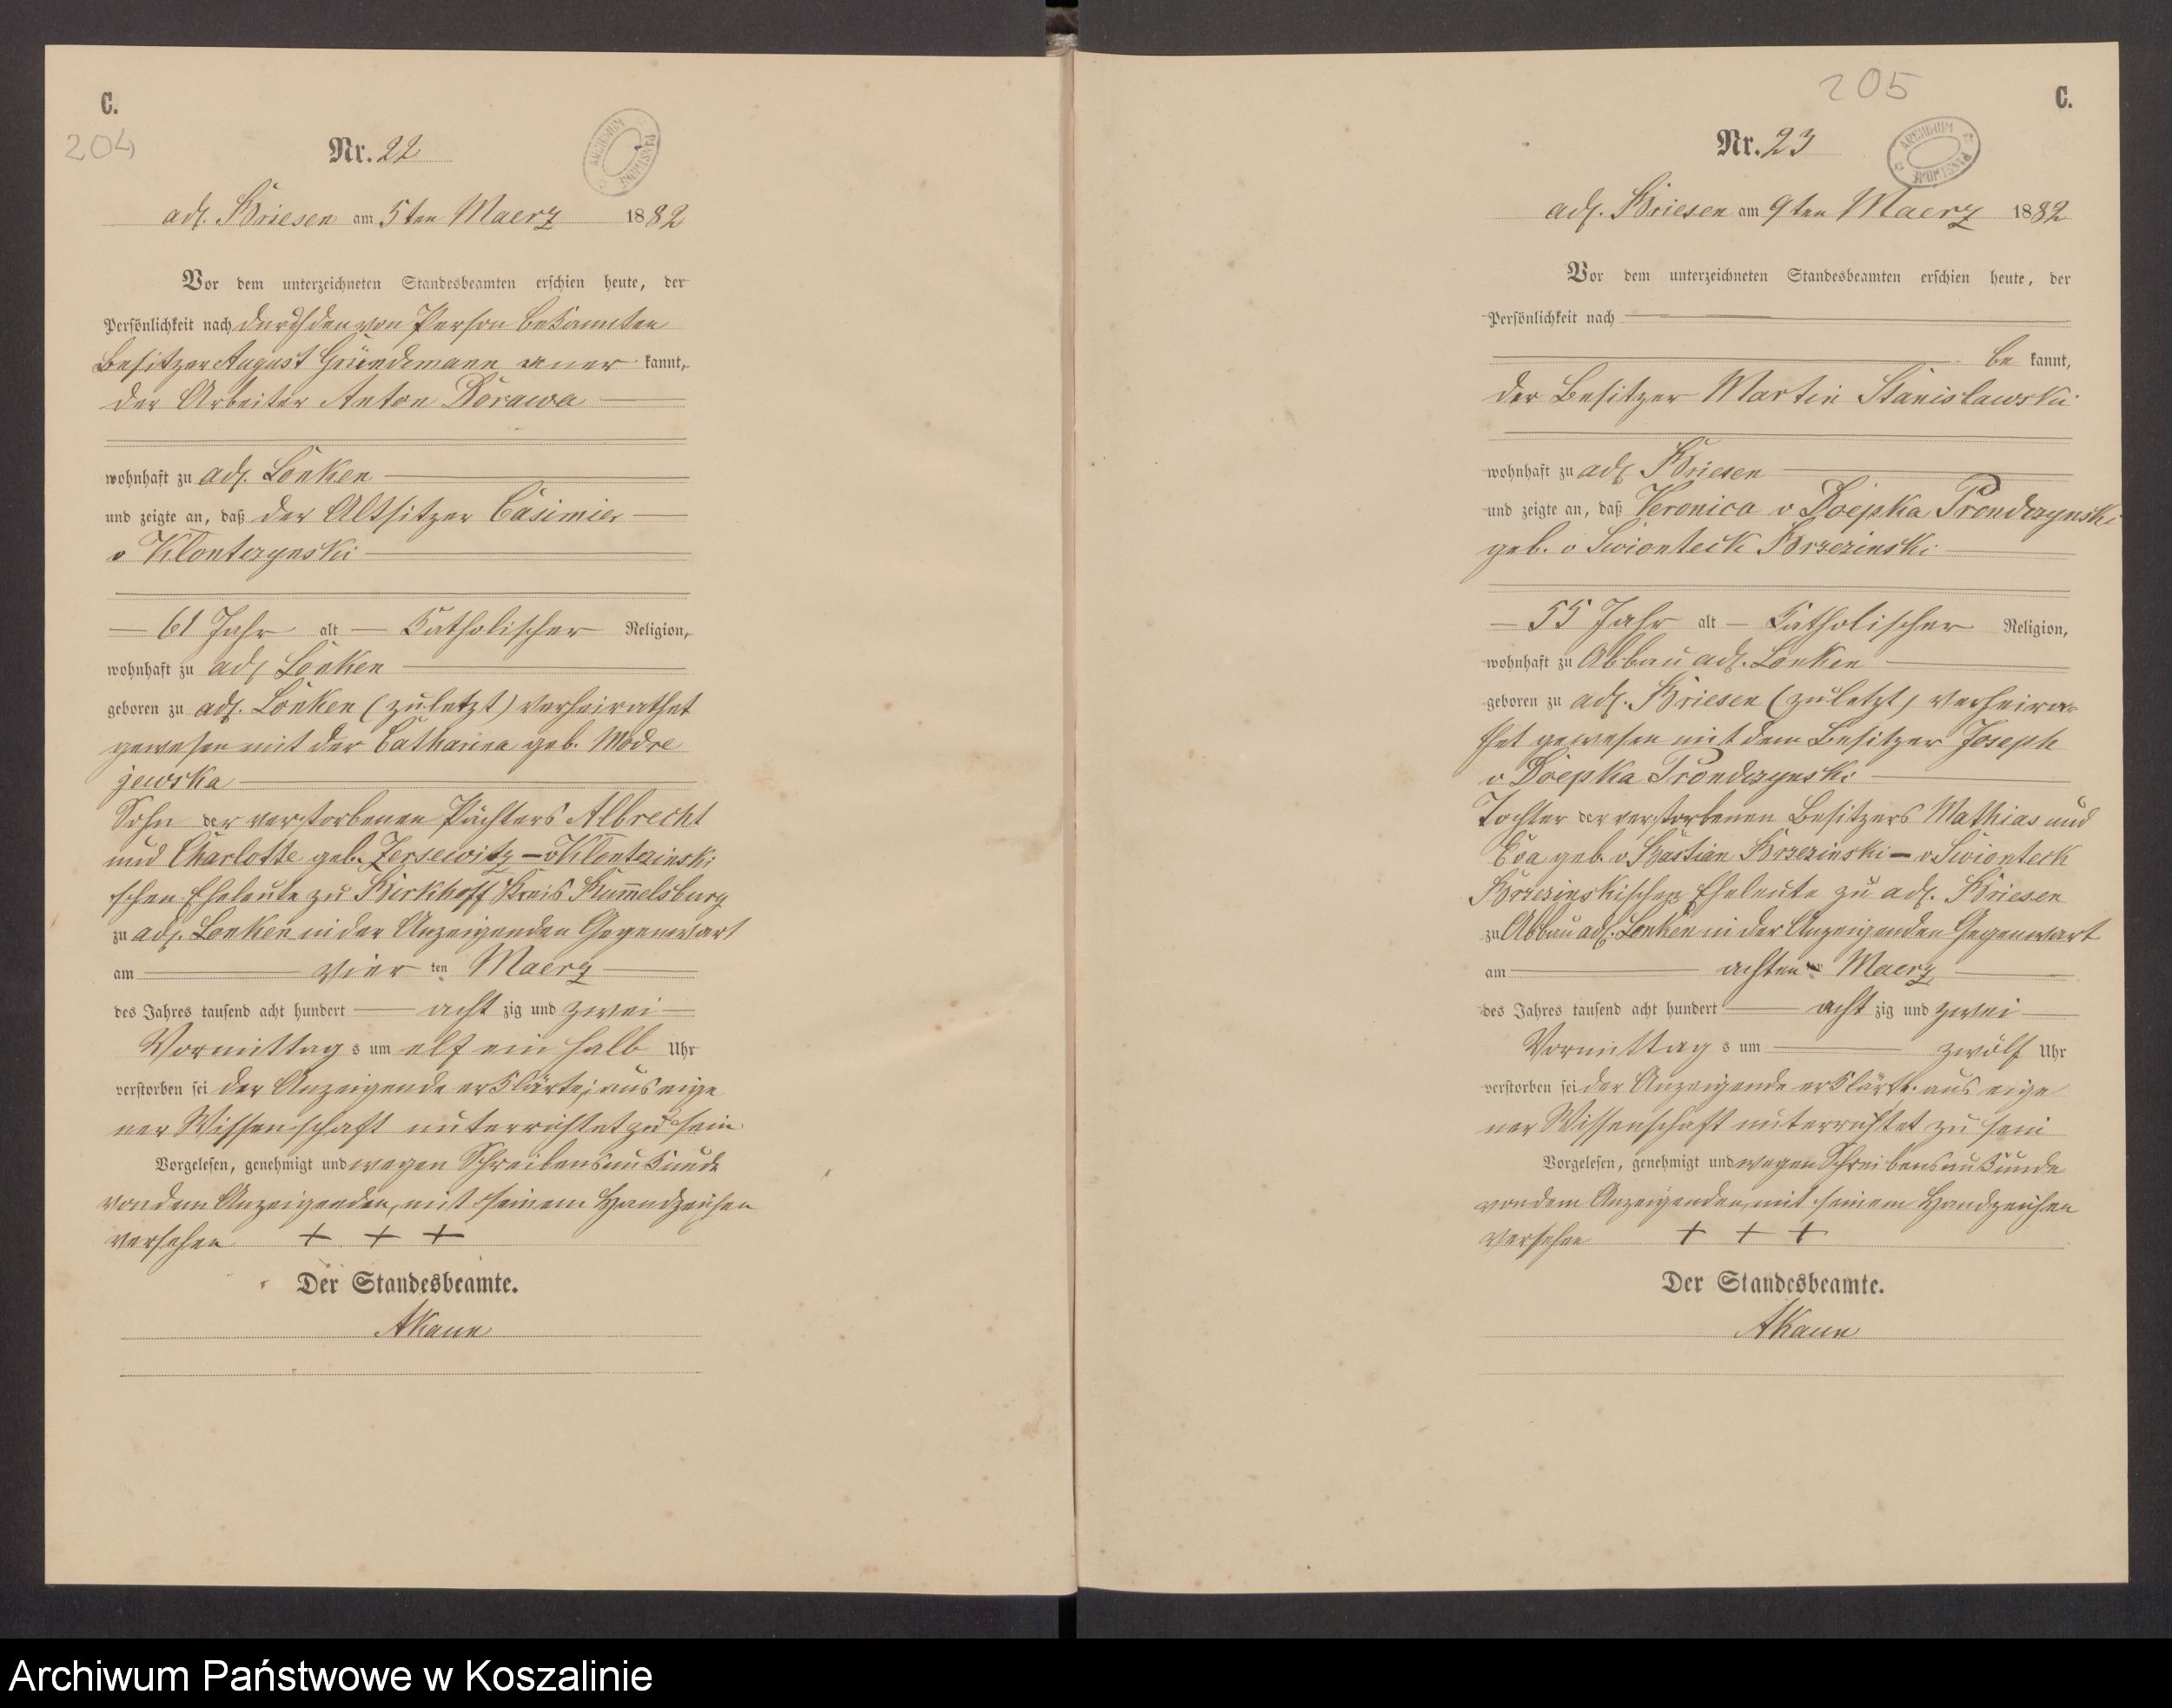 C.
204
Nr. 22
ARCHIWUM PAŃSTWOWE
adl. Briesen am 5ten Maerz 1882
Vor dem unterzeichneten Standesbeamten erschien heute, der
Persönlichkeit nach durch den von Person bekannten
Besitzer August Gründemann aner kannt,
der Arbeiter Anton
wohnhaft zu adl. Lonken
und zeigte an, daß der Altsitzer Casimier
v Klontczynski
61 Jahr alt Katholischer Religion,
wohnhaft zu adl Lonken
geboren zu adl. Lonken (zuletzt) verheirathet
gewesen mit der Catharina geb. Modre
jewska
Sohn der verstorbenen Pächters Albrecht
und Charlotte geb. Zersewitz – v Klontczinski
schen Eheleute zu Birkhoff Kreis Rummelsburg
zu adl. Lonken in der Anzeigenden Gegenwart
am vier ten Maerz
des Jahres tausend acht hundert acht zig und zwei
Vormittag s um elf ein halb Uhr
verstorben sei der Anzeigende erklärte, aus eige
ner Wissenschaft unterrichtet zu sein
Vorgelesen, genehmigt und wegen Schreibensunkunde
von dem Anzeigenden, mit seinem Handzeichen
versehen + + +
Der Standesbeamte.
AKann
205
C.
Nr. 23
ARCHIWUM PAŃSTWOWE
adl. Briesen am 9ten Maerz 1882
Vor dem unterzeichneten Standesbeamten erschien heute, der
Persönlichkeit nach
be kannt,
der Besitzer Martin Stanislawski
wohnhaft zu adl Briesen
und zeigte an, daß Veronica v Prondczynski
geb. v Swionteck Brzezinski
55 Jahr alt – Katholischer Religion,
wohnhaft zu Abbau adl. Lonken
geboren zu adl. Briesen (zuletzt) verheira-
thet gewesen mit dem Besitzer Joseph
v Prondczynski
Tochter der verstorbenen Besitzers Mathias und
Eva geb. v Bastian Brzezinski – v Swionteck
Brzezinskischen Eheleute zu adl. Briesen
zu Abbau adl. Lonken in der Anzeigenden Gegenwart
am achten Maerz
des Jahres tausend acht hundert acht zig und zwei
Vormittag s um zwölf Uhr
verstorben sei der Anzeigende erklärte aus eige
ner Wissenschaft unterrichtet zu sein
Vorgelesen, genehmigt und wegen Schreibensunkunde
von dem Anzeigenden, mit seinem Handzeichen
versehen + + +
Der Standesbeamte.
AKann
Archiwum Państwowe w Koszalinie